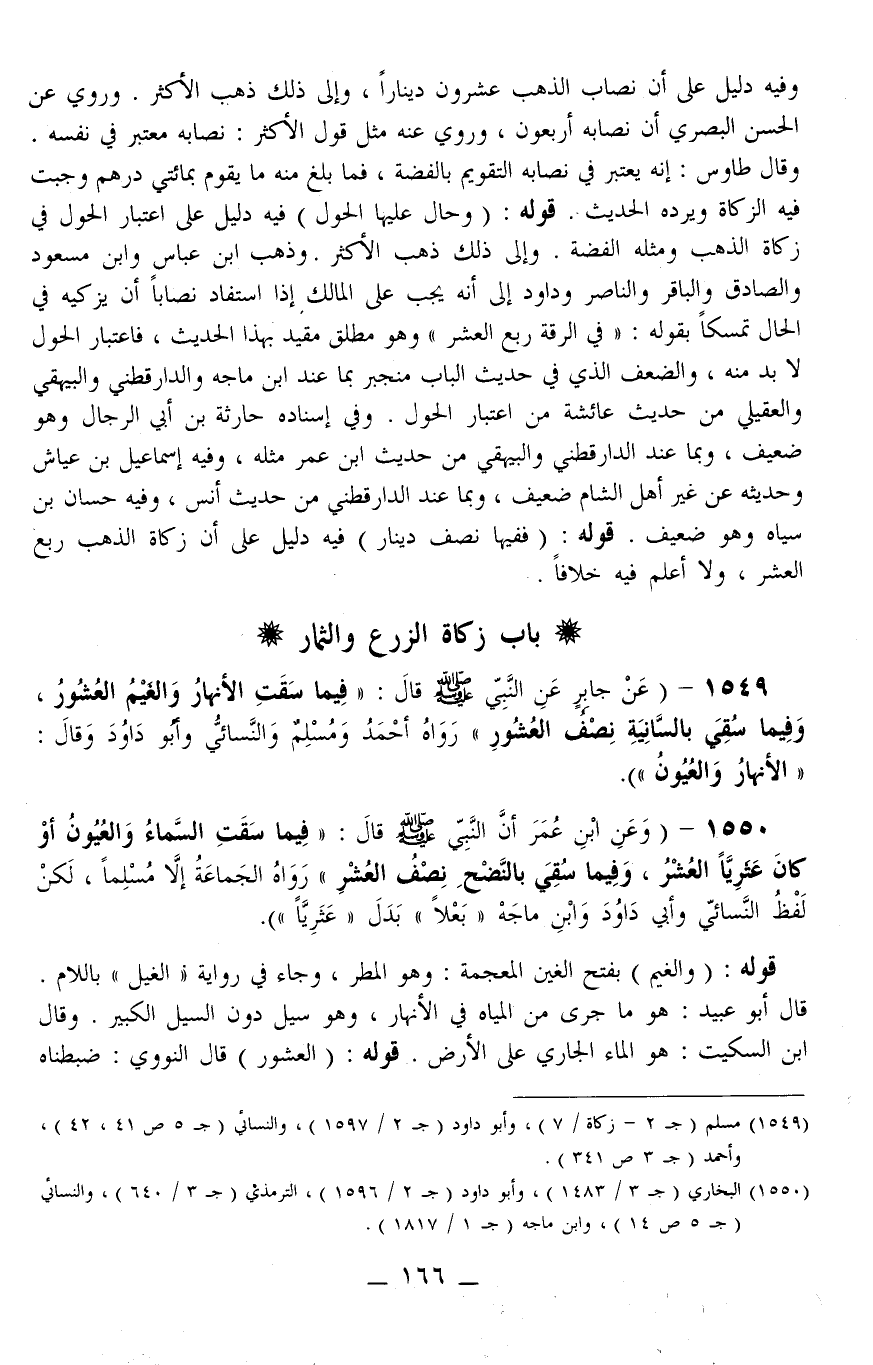 وفيه دليل على أن نصاب الذهب عشرون ديناراً ، وإلى ذلك ذهب الأكثر . وروي عن
الحسن البصري أن نصابه أربعون ، وروي عنه مثل قول الأكثر : نصابه معتبر في نفسه .
وقال طاوس : إنه يعتبر في نصابه التقويم بالفضة ، فما بلغ منه ما يقوم بمائتي درهم وجبت
فيه الزكاة ويرده الحديث . قوله : ( وحال عليها الحول ) فيه دليل على اعتبار الحول في
زكاة الذهب ومثله الفضة . وإلى ذلك ذهب الأكثر . وذهب ابن عباس وابن مسعود
والصادق والباقر والناصر وداود إلى أنه يجب على المالك إذا استفاد نصاباً أن يزكيه في
الحال تمسكاً بقوله : « في الرقة ربع العشر » وهو مطلق مقيد بهذا الحديث ، فاعتبار الحول
لا بد منه ، والضعف الذي في حديث الباب منجبر بما عند ابن ماجه والدارقطني والبيهقي
والعقيلي من حديث عائشة من اعتبار الحول . وفي إسناده حارثة بن أبي الرجال وهو
ضعيف ، وبما عند الدارقطني والبيهقي من حديث ابن عمر مثله ، وفيه إسماعيل بن عياش
وحديثه عن غير أهل الشام ضعيف ، وبما عند الدارقطني من حديث أنس ، وفيه حسان بن
سياه وهو ضعيف . قوله : ( ففيها نصف دينار ) فيه دليل على أن زكاة الذهب ربع
العشر ، ولا أعلم فيه خلافاً .
باب زكاة الزرع والثمار
١٥٤٩ – ( عَنْ جابِرٍ عَنِ النَّبِيّ ﷺ قالَ : « فِيما سَقَتِ الأنهارُ وَالغَيْمُ العُشُورُ ،
وَفِيما سُقِيَ بالسَّانِيَةِ نِصْفُ العُشُورِ » رَوَاهُ أحْمَدُ وَمُسْلِمٌ وَالنَّسائيُّ وأبُو دَاوُدَ وَقالَ :
« الأنهارُ وَالعُيُونُ »).
١٥٥٠ – ( وَعَنِ ابْنِ عُمَرَ أنَّ النَّبِيّ ﷺ قالَ : « فِيما سَقَتِ السَّماءُ وَالعُيُونُ أوْ
كانَ عَثَرِيَّاً العُشْرُ ، وَفِيما سُقِيَ بالنَّضْحِ نِصْفُ العُشْرِ » رَوَاهُ الجَماعَةُ إلَّا مُسْلِماً ، لَكنْ
لَفْظُ النَّسائيّ وأبي دَاوُدَ وَابْنِ ماجَهْ « بَعْلاً » بَدَلَ « عَثَرِيَّاً »).
قوله : ( والغيم ) بفتح الغين المعجمة : وهو المطر ، وجاء في رواية « الغيل » باللام .
قال أبو عبيد : هو ما جرى من المياه في الأنهار ، وهو سيل دون السيل الكبير . وقال
ابن السكيت : هو الماء الجاري على الأرض . قوله : ( العشور ) قال النووي : ضبطناه
(١٥٤٩) مسلم ( جـ ٢ – زكاة / ٧ ) ، وأبو داود ( جـ ٢ / ١٥٩٧ ) ، والنسائي ( جـ ٥ ص ٤١ ، ٤٢ ) ،
وأحمد ( جـ ٣ ص ٣٤١ ) .
(١٥٥٠) البخاري ( جـ ٣ / ١٤٨٣ ) ، وأبو داود ( جـ ٢ / ١٥٩٦ ) ، الترمذي ( جـ ٣ / ٦٤٠ ) ، والنسائي
( جـ ٥ ص ١٤ ) ، وابن ماجه ( جـ ١ / ١٨١٧ ) .
– ١٦٦ –